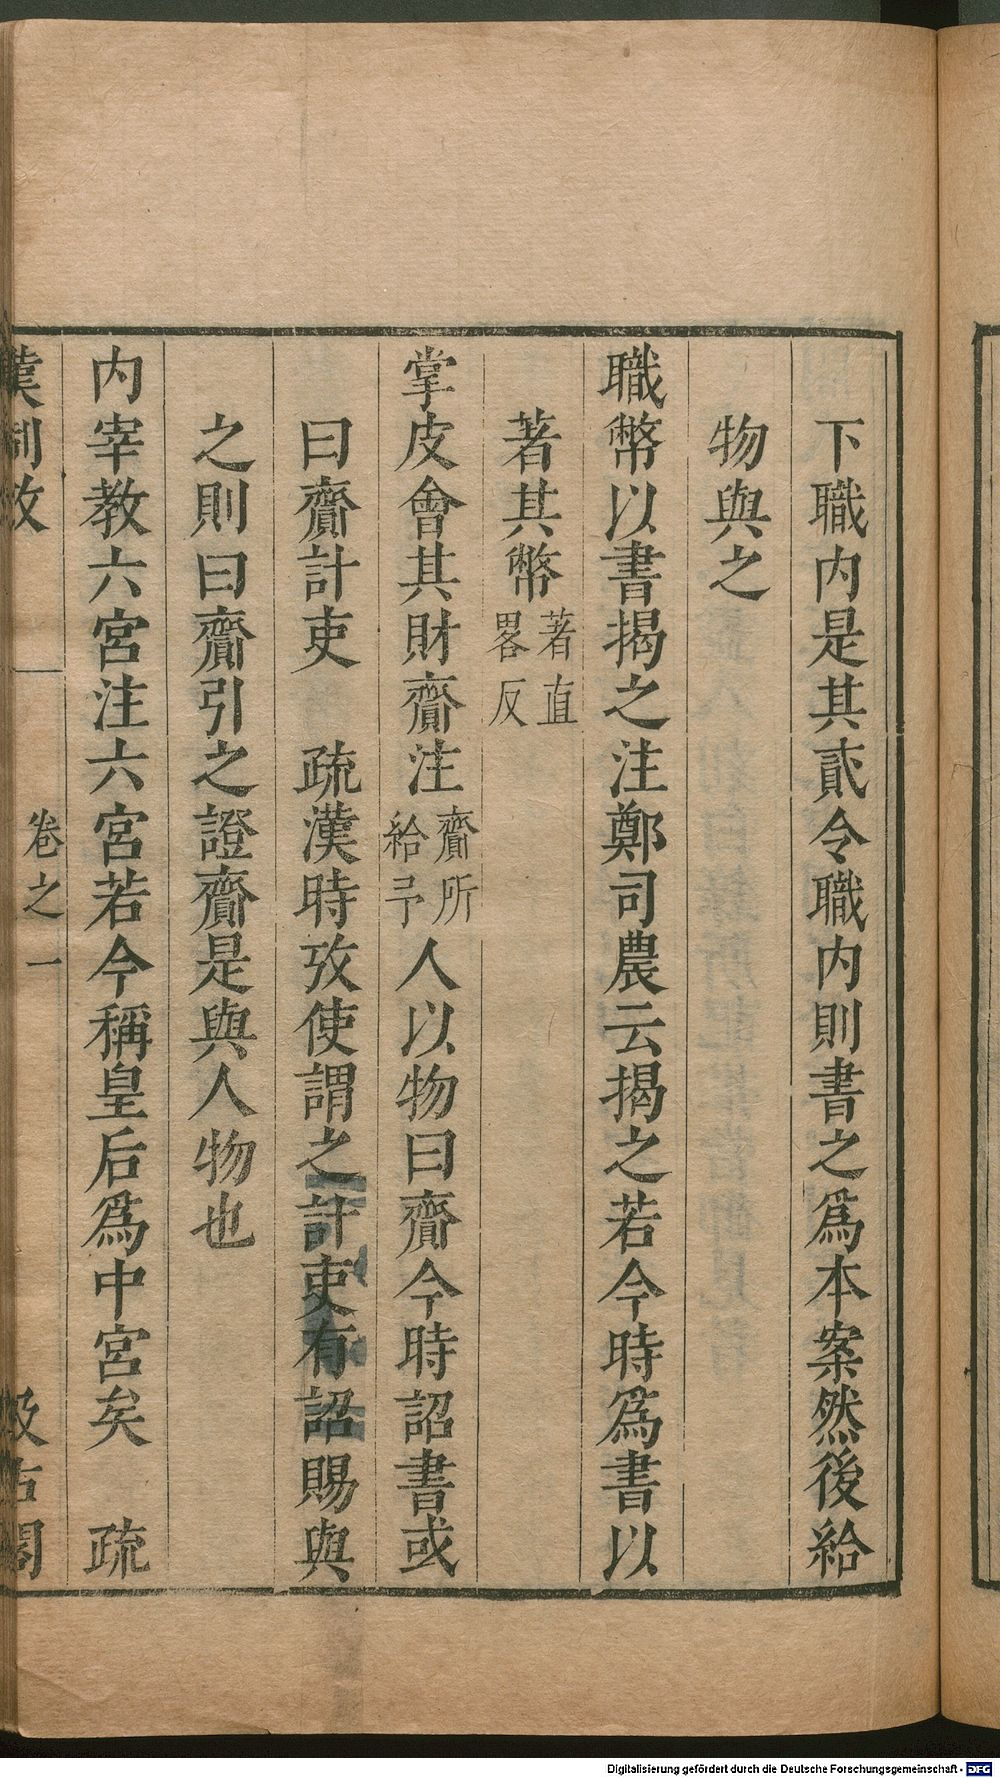 下職內是其貳令職內則書之爲本案然後給
物與之
職幣以書揭之注鄭司農云揭之若今時爲書以
著其幣著直畧反
掌皮會其財齎注齎所給予人以物曰齎今時詔書或
曰齎計吏　疏漢時攷使謂之計吏有詔賜與
之則曰齎引之證齎是與人物也
內宰教六宮注六宮若今稱皇后爲中宮矣　疏
漢制攷　卷之一　汲古閣
Digitalisierung gefördert durch die Deutsche Forschungsgemeinschaft - DFG